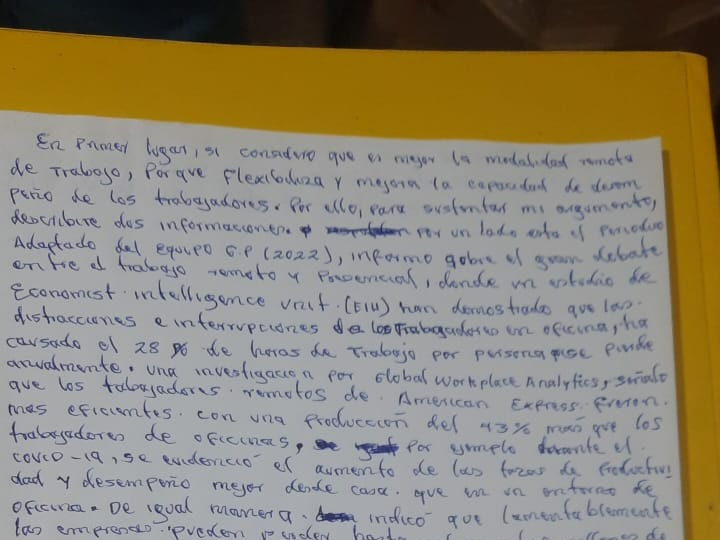 En Primer lugar, si considero que es mejor la modalidad remota
de Trabajo, Porque Flexibiliza y mejora la capacidad de desem
peño de los trabajadores. Por ello, para sustentar mi argumento,
describire dos informaciones. por un lado esta el Periodico
Adaptado del equipo G.P (2022), informo sobre el gran debate
entre el trabajo remoto y Presencial, donde un estudio de
Economist intelligence unit (EIU) han demostrado que las
distracciones e interrupciones de los Trabajadores en oficina, ha
causado el 28 % de horas de Trabajo por persona que se pierde
anualmente. una investigación por Global Workplace Analytics, señalo
que los tabajadores remotos de American Express fueron
mas eficientes con una Producción del 43% mas que los
trabajadores de oficinas, Por ejemplo durante el
covid-19, se evidenció el aumento de las tazas de Productivi
dad y desempeño mejor desde casa que en un entorno de
oficina. De igual manera, indicó que lamentablemente
las empresas pueden perder hasta de